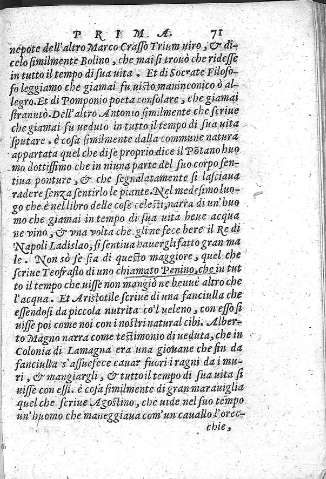 PRIMA. 71
nepote dell'altro Marco Crasso Trium uiro, & di-
celo similmente Bolino, che mai si trouò che ridesse
in tutto il tempo di sua uita. Et di Socrate Filoso-
fo leggiamo che giamai fu uisto maninconico ò al-
legro. Et di Pomponio poeta consolare, che giamai
stranutò. Dell'altro Antonio similmente che scriue
che giamai fu ueduto in tutto il tempo di sua uita
sputare, è cosa similmente dalla commune natura
appartata quel che dise proprio dice il Põtano huo
mo dottissimo che in niuna parte del suo corpo sen-
tiua ponture, & che segnalatamente si lasciaua
radere senza sentirlo le piante. Nel medesimo luo-
go che è nel libro delle cose celesti, narra di un'huo
mo che giamai in tempo di sua uita beue acqua
ne uino, & una uolta che gli ne fece bere il Re di
Napoli Ladislao, si sentiua hauergli fatto gran ma
le. Non sò se sia di questo maggiore, quel che
scriue Teofrasto di uno chiamato Penino, che in tut
to il tempo che uisse non mangiò ne beuue altro che
l'acqua. Et Aristotile scriue di una fanciulla che
essendosi da piccola nutrita co'l ueleno, con esso si
uisse poi come noi con i nostri natural cibi. Alber-
to Magno narra come testimonio di ueduta, che in
Colonia di Lamagna era una giouane che sin da
fanciulla s'assuefece cauar fuori i ragni da i mu-
ri, & mangiargli, & tutto il tempo di sua uita si
uisse con essi. è cosa similmente di gran marauiglia
quel che scriue Agostino, che uide nel suo tempo
un'huomo che maneggiaua com'un cauallo l'orec-
chie,